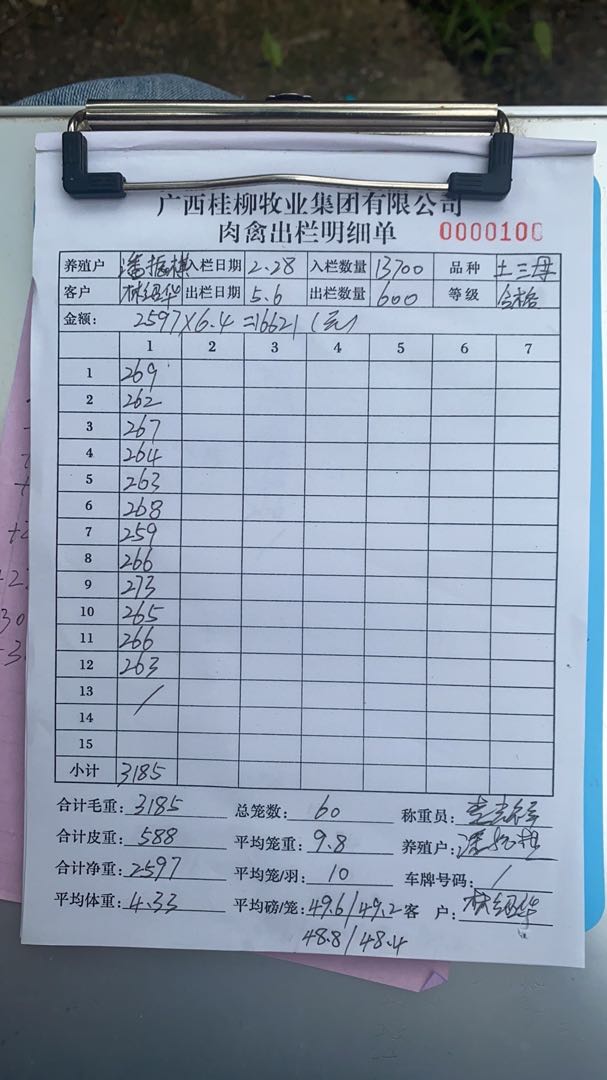 广西桂柳牧业集团有限公司
肉禽出栏明细单 0000100
养殖户 潘振 入栏日期 2.28 入栏数量 13700 品种 土三母
客户 林绍华 出栏日期 5.6 出栏数量 600 等级 合格
金额: 2597×6.4=16621(元)
1 2 3 4 5 6 7
1 269
2 262
3 267
4 264
5 263
6 268
7 259
8 266
9 273
10 265
11 266
12 263
13 /
14
15
小计 3185
合计毛重: 3185 总笼数: 60 称重员:
合计皮重: 588 平均笼重: 9.8 养殖户: 潘振
合计净重: 2597 平均笼/羽: 10 车牌号码: /
平均体重: 4.33 平均磅/笼: 49.6/49.2 客 户: 林绍华
48.8/48.4